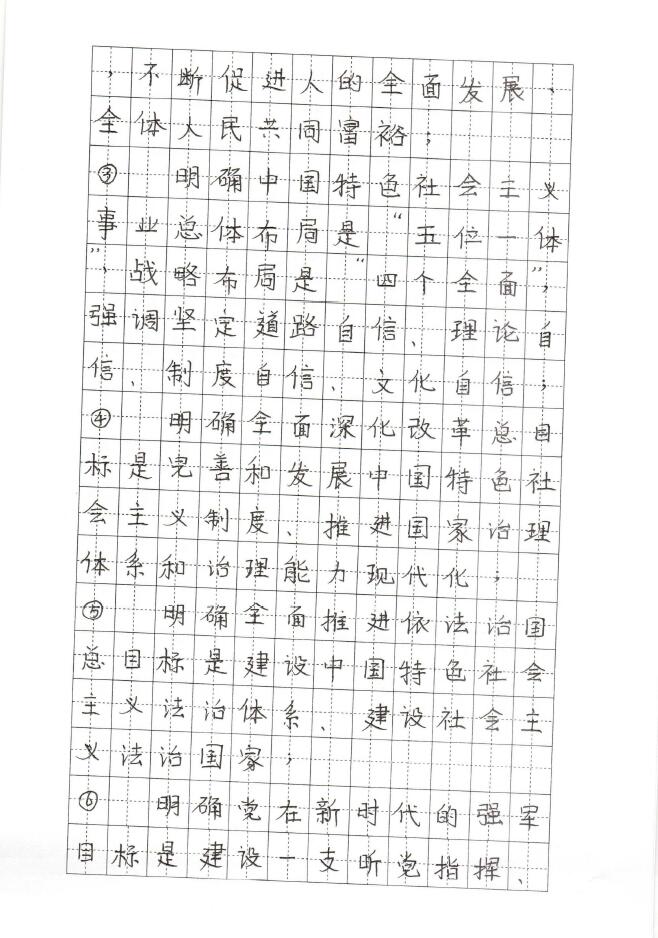 ，不断促进人的全面发展、
全体人民共同富裕；
③ 明确中国特色社会主义
事业总体布局是“五位一体
”，战略布局是“四个全面”；
强调坚定道路自信、理论自
信、制度自信、文化自信；
④ 明确全面深化改革总目
标是完善和发展中国特色社
会主义制度、推进国家治理
体系和治理能力现代化；
⑤ 明确全面推进依法治国
总目标是建设中国特色社会
主义法治体系、建设社会主
义法治国家；
⑥ 明确党在新时代的强军
目标是建设一支听党指挥、